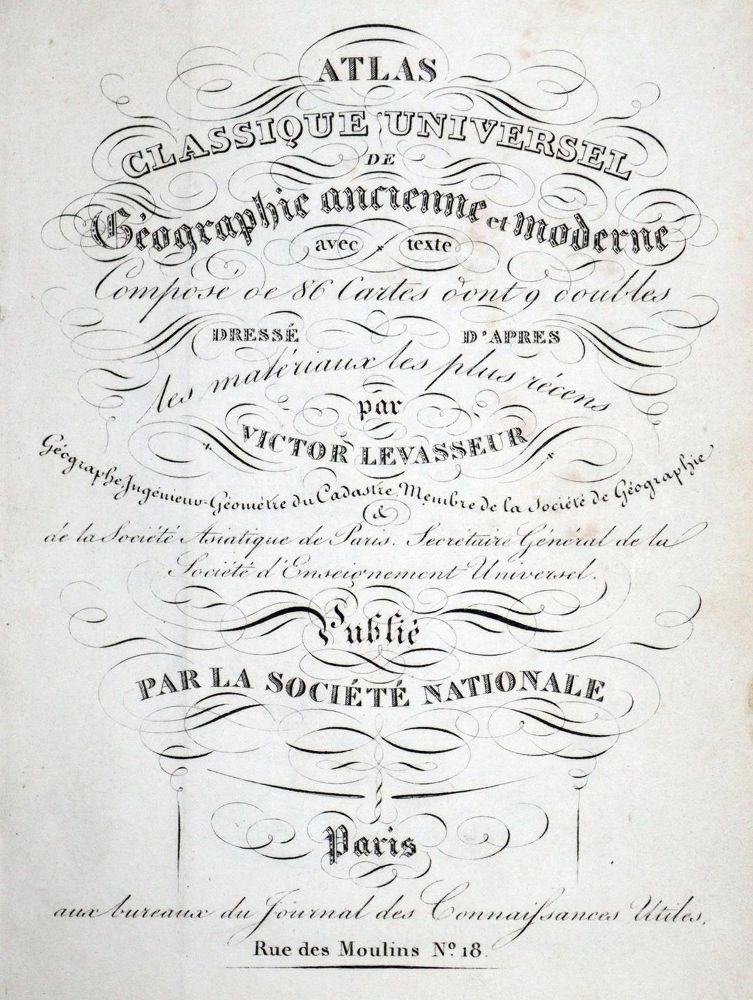 ATLAS
CLASSIQUE UNIVERSEL
DE
Géographie ancienne et moderne
avec texte
Composé de 86 Cartes dont 9 doubles
DRESSÉ D'APRES
les matériaux les plus récens
par
VICTOR LEVASSEUR
Géographe, Ingénieur-Géomètre du Cadastre, Membre de la Société de Géographie
&
de la Société Asiatique de Paris. Secrétaire Général de la
Société d'Enseignement Universel.
Publié
PAR LA SOCIÉTÉ NATIONALE
Paris
aux bureaux du Journal des Connaiſsances Utiles,
Rue des Moulins Nº 18.